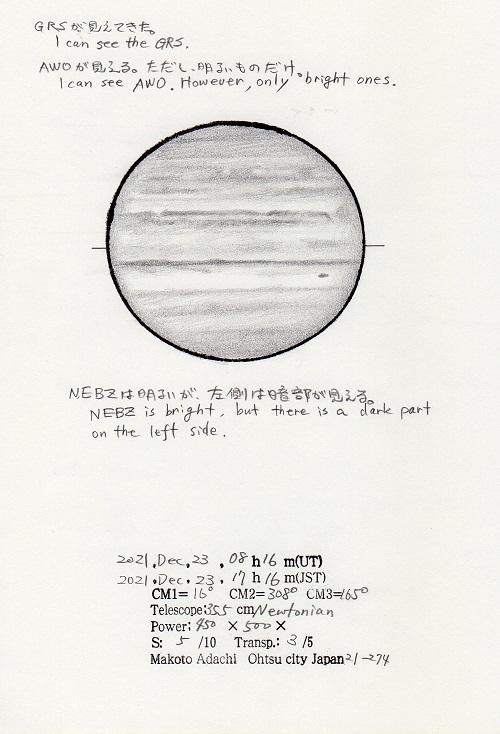 GRSが見えてきた。
I can see the GRS.
AWOが見える。ただし、明るいものだけ。
I can see AWO. However, only bright ones.
NEBZは明るいが、左側は暗部が見える。
NEBZ is bright, but there is a dark part
on the left side.
2021.Dec.23, 08h16m(UT)
2021.Dec.23, 17h16m(JST)
CM1=16° CM2=308° CM3=165°
Telescope:355cm Newtonian
Power: 450 × 500 ×
S: 5 /10 Transp.: 3 /5
Makoto Adachi Ohtsu city Japan 21-274